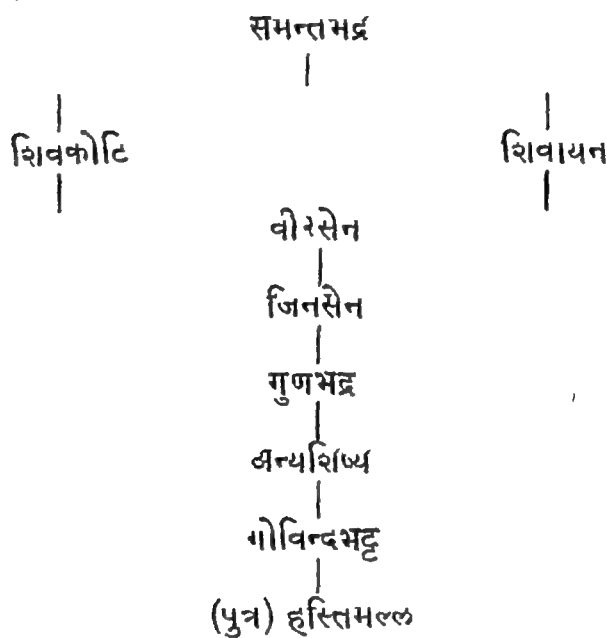 समन्तभद्र
शिवकोटि शिवायन
वीरसेन
जिनसेन
गुणभद्र
अन्यशिष्य
गोविन्दभट्ट
(पुत्र) हस्तिमल्ल